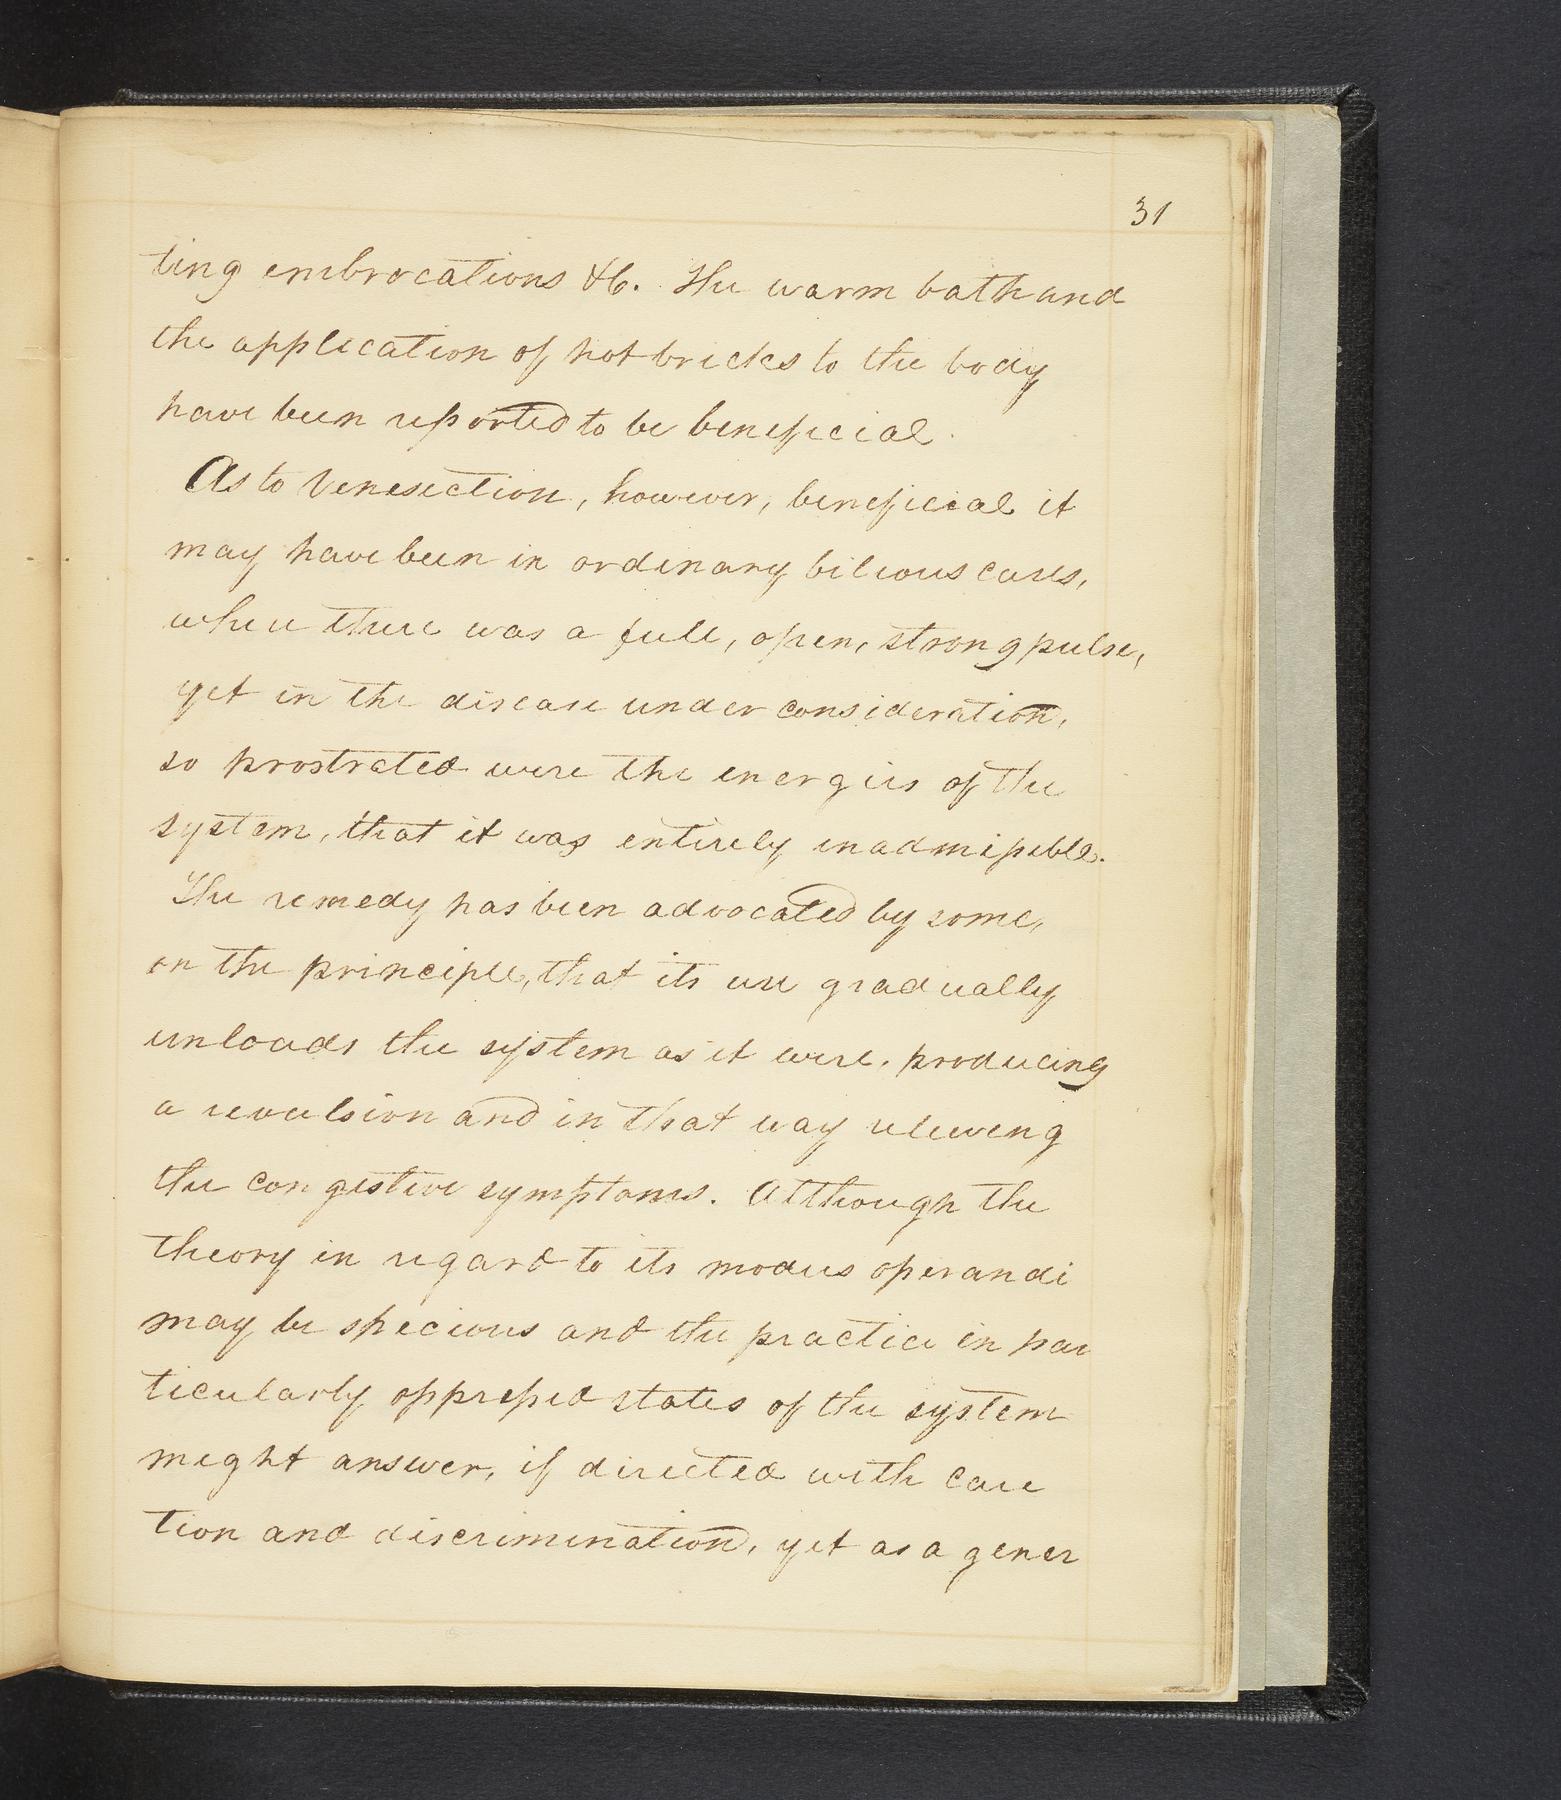 31
ting embrocations &c. The warm bath and
the application of hot bricks to the body
have been reported to be beneficial.
As to Venesection, however, beneficial it
may have been in ordinary bilious cases,
when there was a full, open, strong pulse,
yet in the disease under consideration,
so prostrated were the energies of the
system, that it was entirely inadmissible.
The remedy has been advocated by some,
on the principle, that its use gradually
unloads the system as it were, producing
a revulsion and in that way relieving
the congestive symptoms. Although the
theory in regard to its modus operandi
may be specious and the practice in par
ticularly oppressed states of the system
might answer, if directed with cau
tion and discrimination, yet as a gener